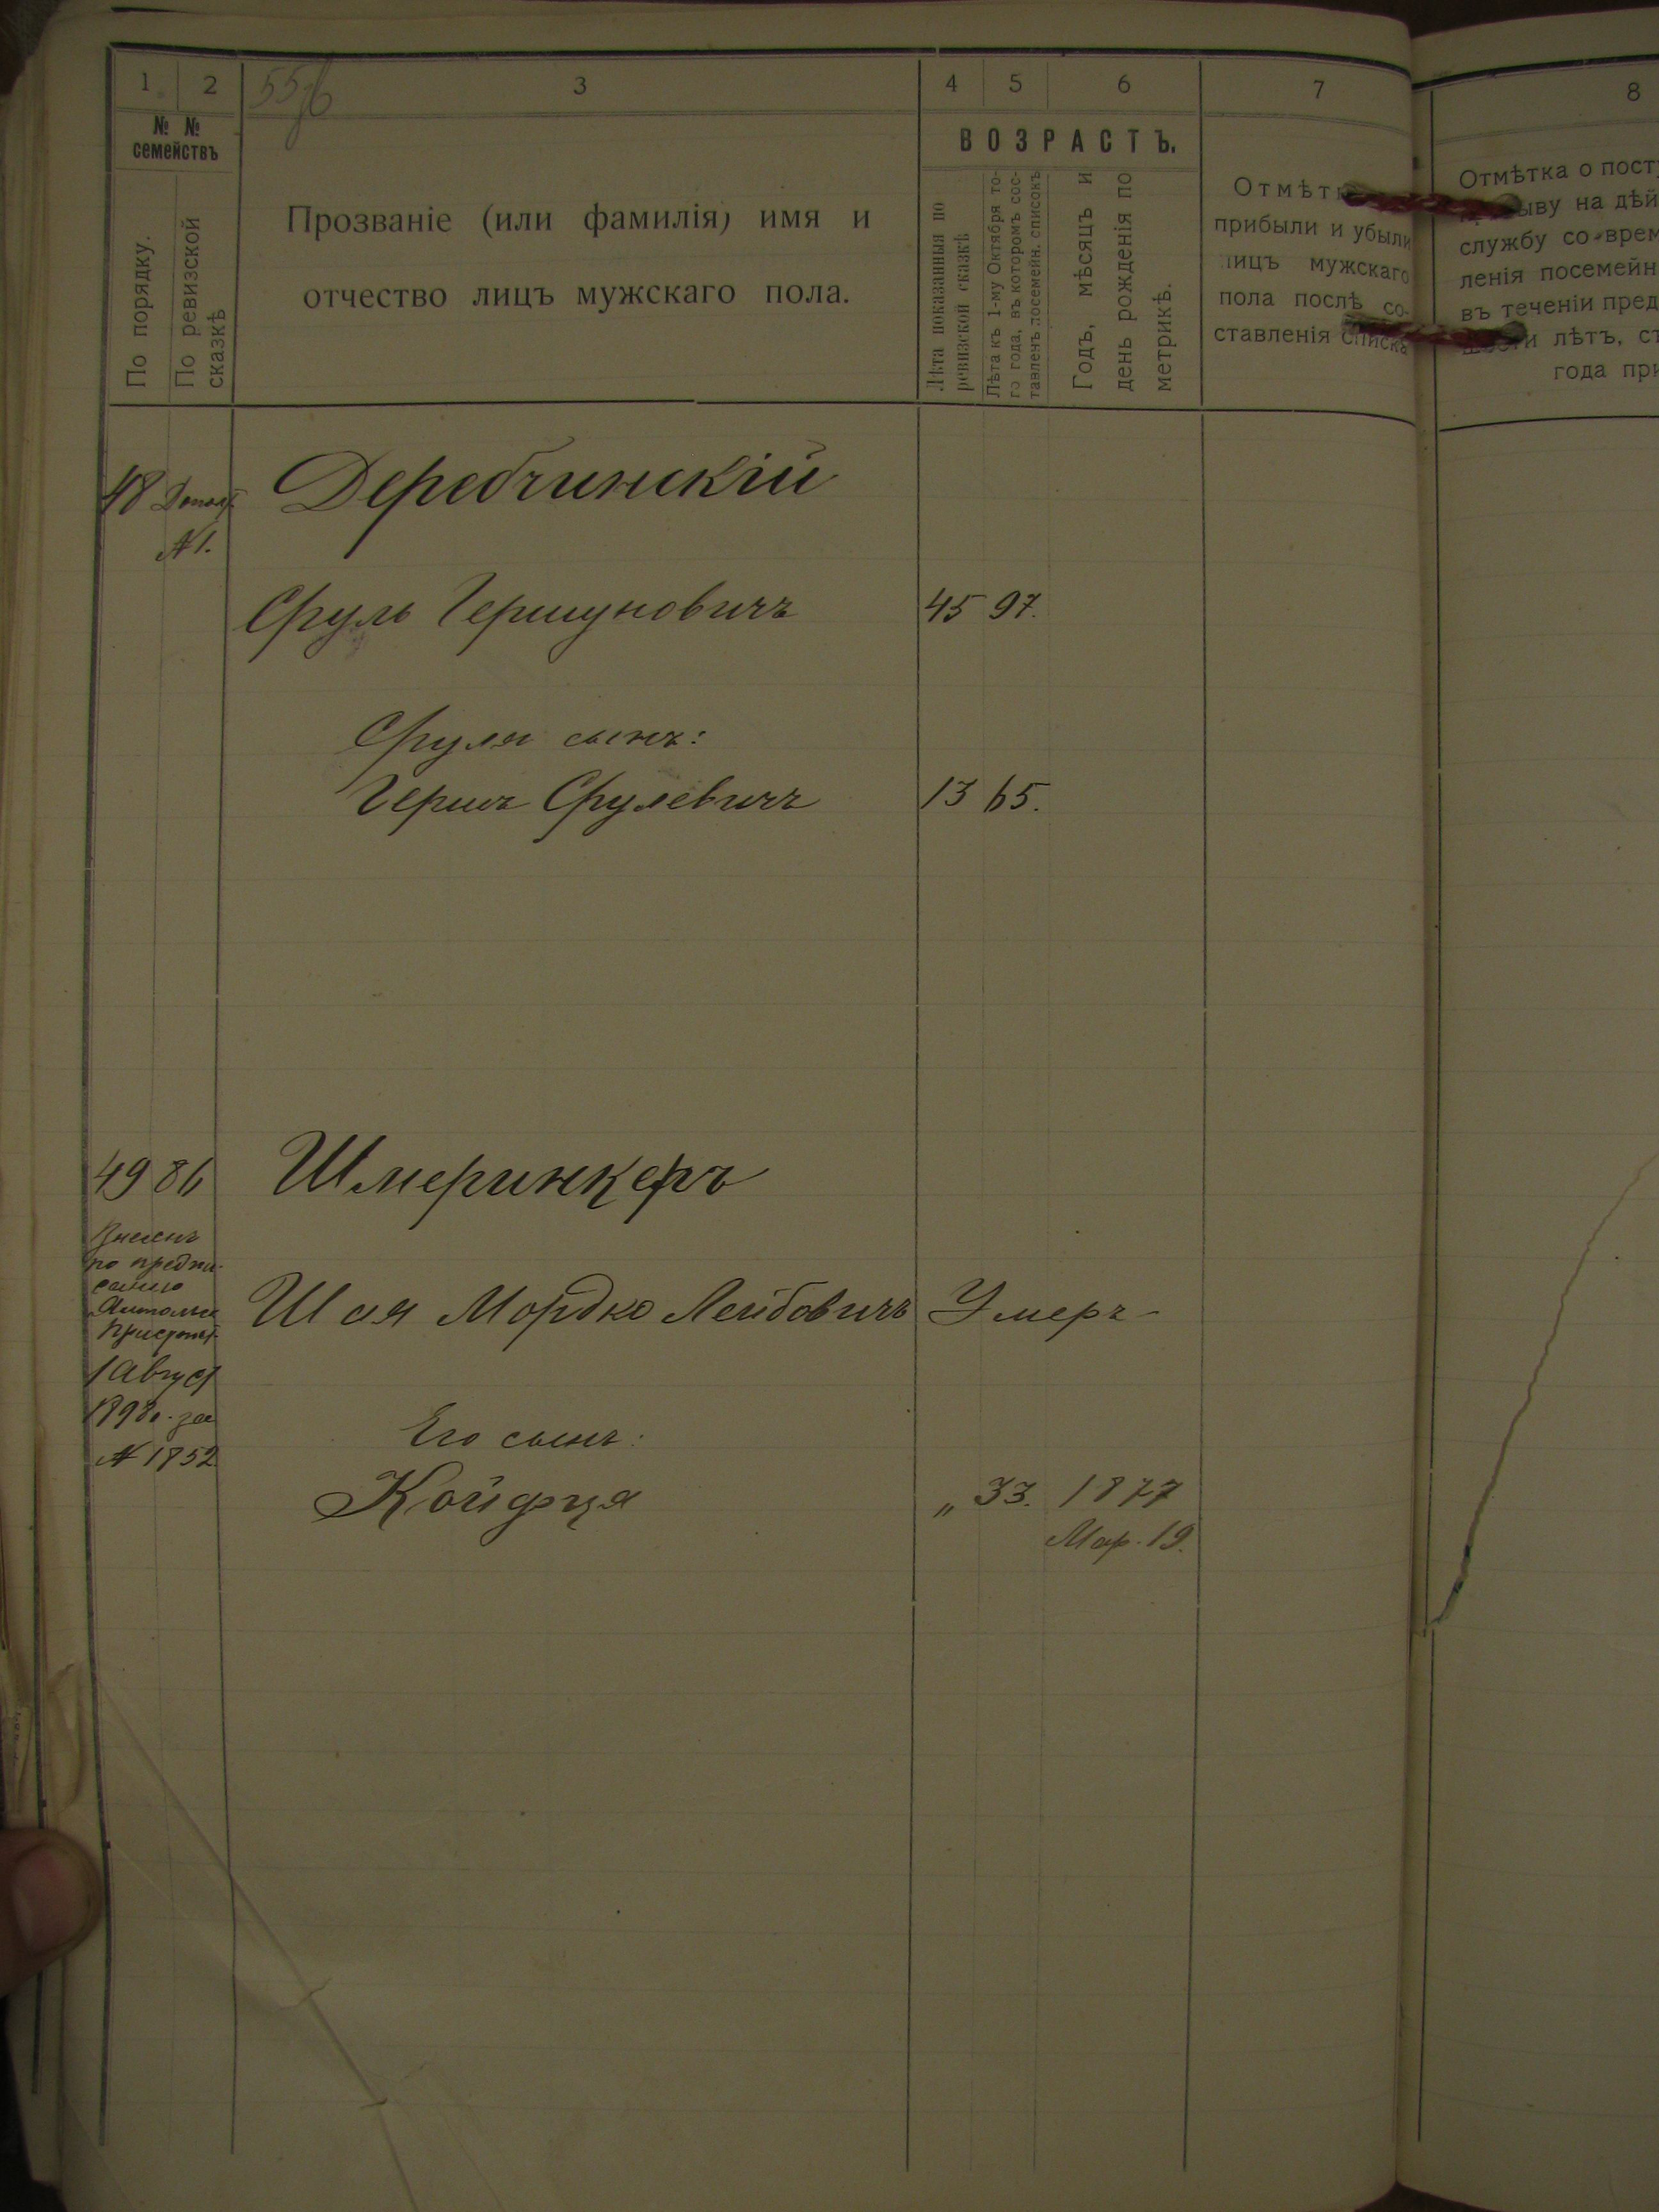 1 2 3 4 5 6 7 8
№ № семействъ
По порядку.
По ревизской сказкѣ
Прозваніе (или фамилія) имя и
отчество лицъ мужскаго пола.
ВОЗРАСТЪ.
Лѣта показанныя по ревизской сказкѣ
Лѣта къ 1-му Октября то-
го года, въ которомъ сос-
тавленъ посемейн. списокъ
Годъ, мѣсяцъ и
день рожденія по
метрикѣ.
Отмѣт
прибыли и убыли
лицъ мужскаго
пола послѣ со-
ставленія списка
Отмѣтка о пост
ыву на дѣй
службу со врем
ленія посемейн
въ теченіи пред
лѣтъ, ст
года при
48 Допол. Деребчинскій
№ 1.
Сруль Гершуновичъ 45 97.
Сруля сынъ:
Гершъ Срулевичъ 13 65.
49 86 Шмеринкеръ
Внесенъ
по предпи-
санію
1 Август
1898 г. за
№ 1852
Шая Мордко Лейбовичъ Умеръ
Его сынъ:
Койфця „ 33. 1877
Мар. 19.